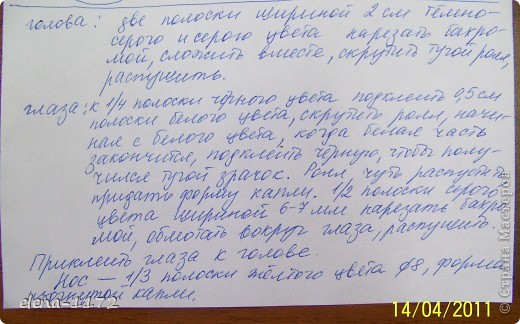 голова: две полоски шириной 2 см темно-
серого и серого цвета нарезать бахро-
мой, сложить вместе, скрутить тугой ролл,
распушить.
глаза: к 1/4 полоски чёрного цвета подклеить 0,5 см
полоски белого цвета, скрутить ролл, начи-
ная с белого цвета, когда белая часть
закончится, подклеить чёрную, чтобы полу-
чился тугой зрачок. Ролл, чуть распустить
придать форму капли. 1/2 полоски серого
цвета шириной 6-7 мм нарезать бахро-
мой, обмотать вокруг глаза, распушить.
Приклеить глаза к голове.
Нос — 1/3 полоски жёлтого цвета ф8, форма
изогнутой капли.
elena-1172
14/04/2011
© Страна Мастеров